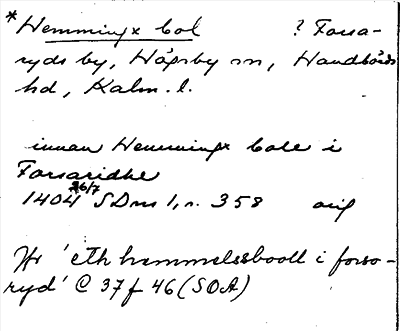 *Hemmingx bol ? Forsa-
ryds by, Högsby sn, Handbörds
hd, Kalm. l.
innan Hemmingx bole i
Forsaridhe
1404 26/7 SDns 1, s. 358 orig
Jfr 'eth hemmelssbooll i forso-
ryd' C 37 f 46 (SOA)